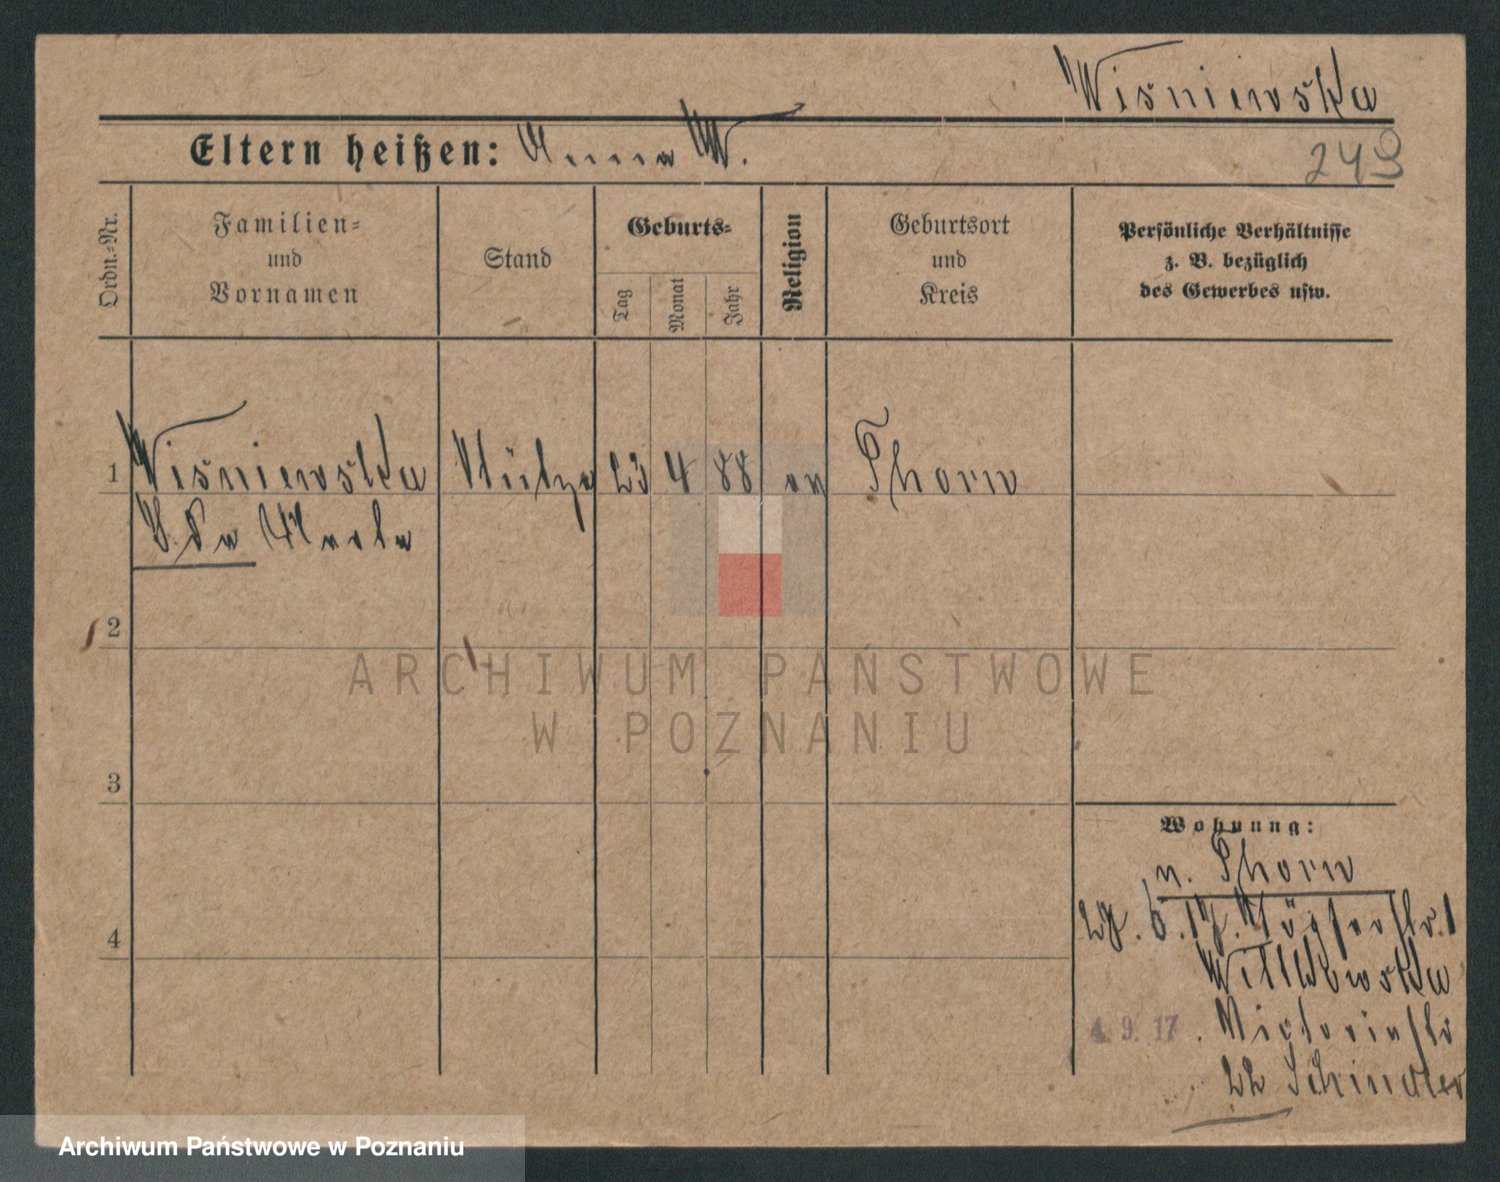 Wiśniewska
Eltern heißen: Anna W.
249
Ordn.-Nr.
Familien-
und
Vornamen
Stand
Geburts-
Tag
Monat
Jahr
Religion
Geburtsort
und
Kreis
Persönliche Verhältnisse
z. B. bezüglich
des Gewerbes usw.
1
Wiśniewska Stütze 23 4 88 Thorn
2
ARCHIWUM PAŃSTWOWE
W POZNANIU
3
Wohnung:
n. Thorn
4
4. 9. 17. Victoriastr
22 Schindler
Archiwum Państwowe w Poznaniu